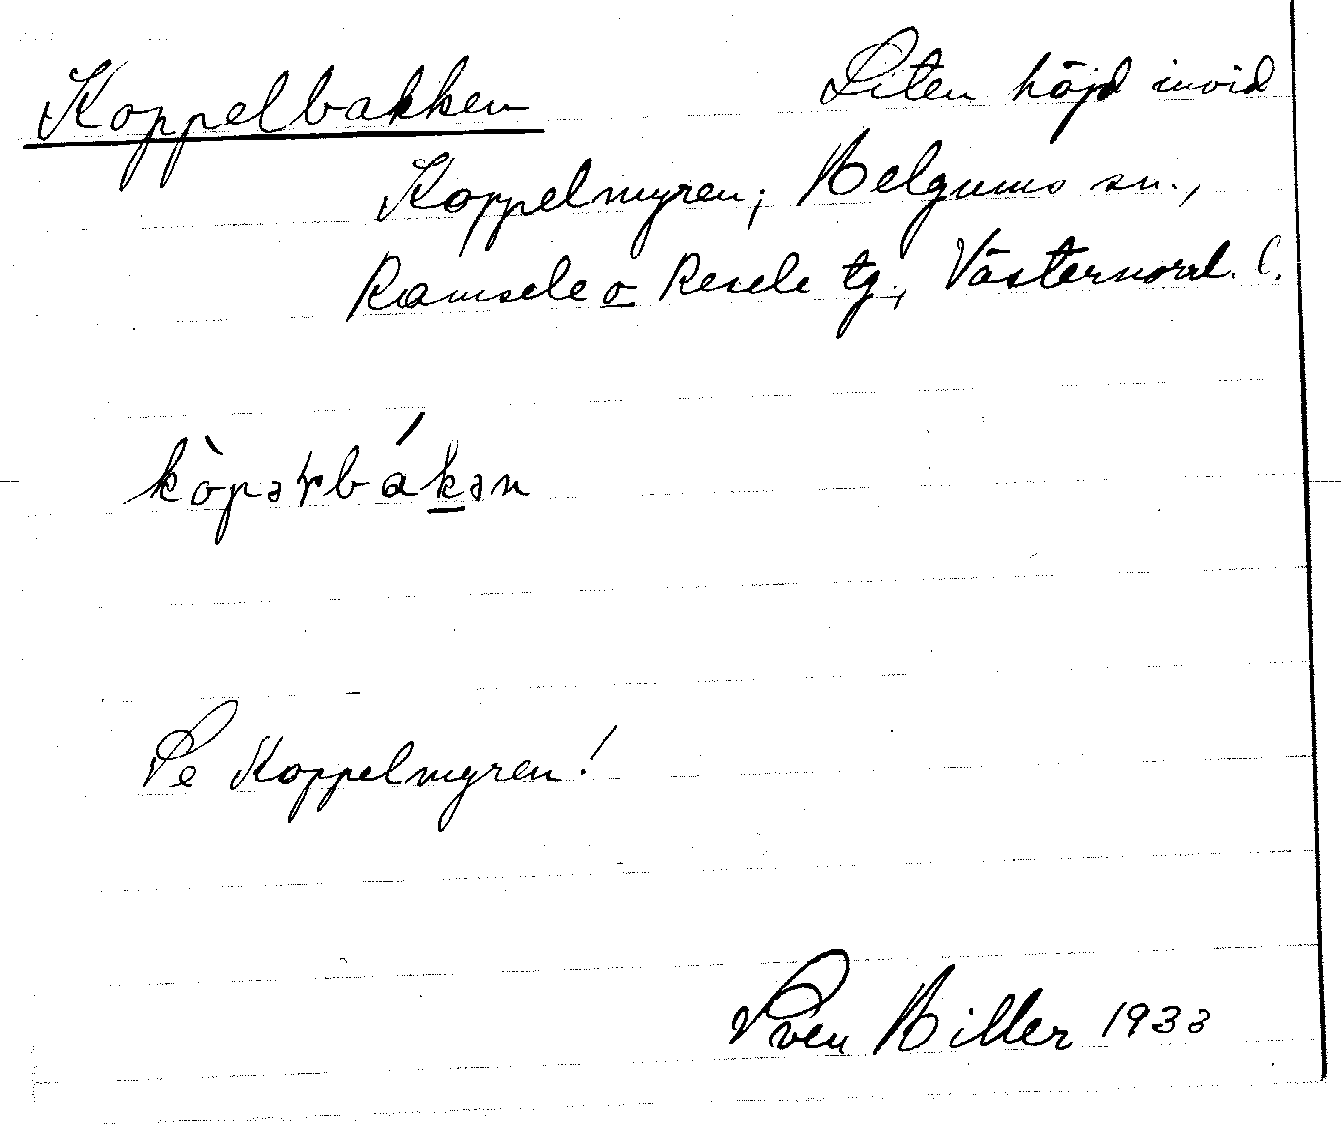 Koppelbakken Liten höjd invid
Koppelmyren; Helgums sn.,
Ramsele o Resele tg., Västernorrl. l.
kòpəɽbákən
Se Koppelmyren!
Sven Hiller 1933